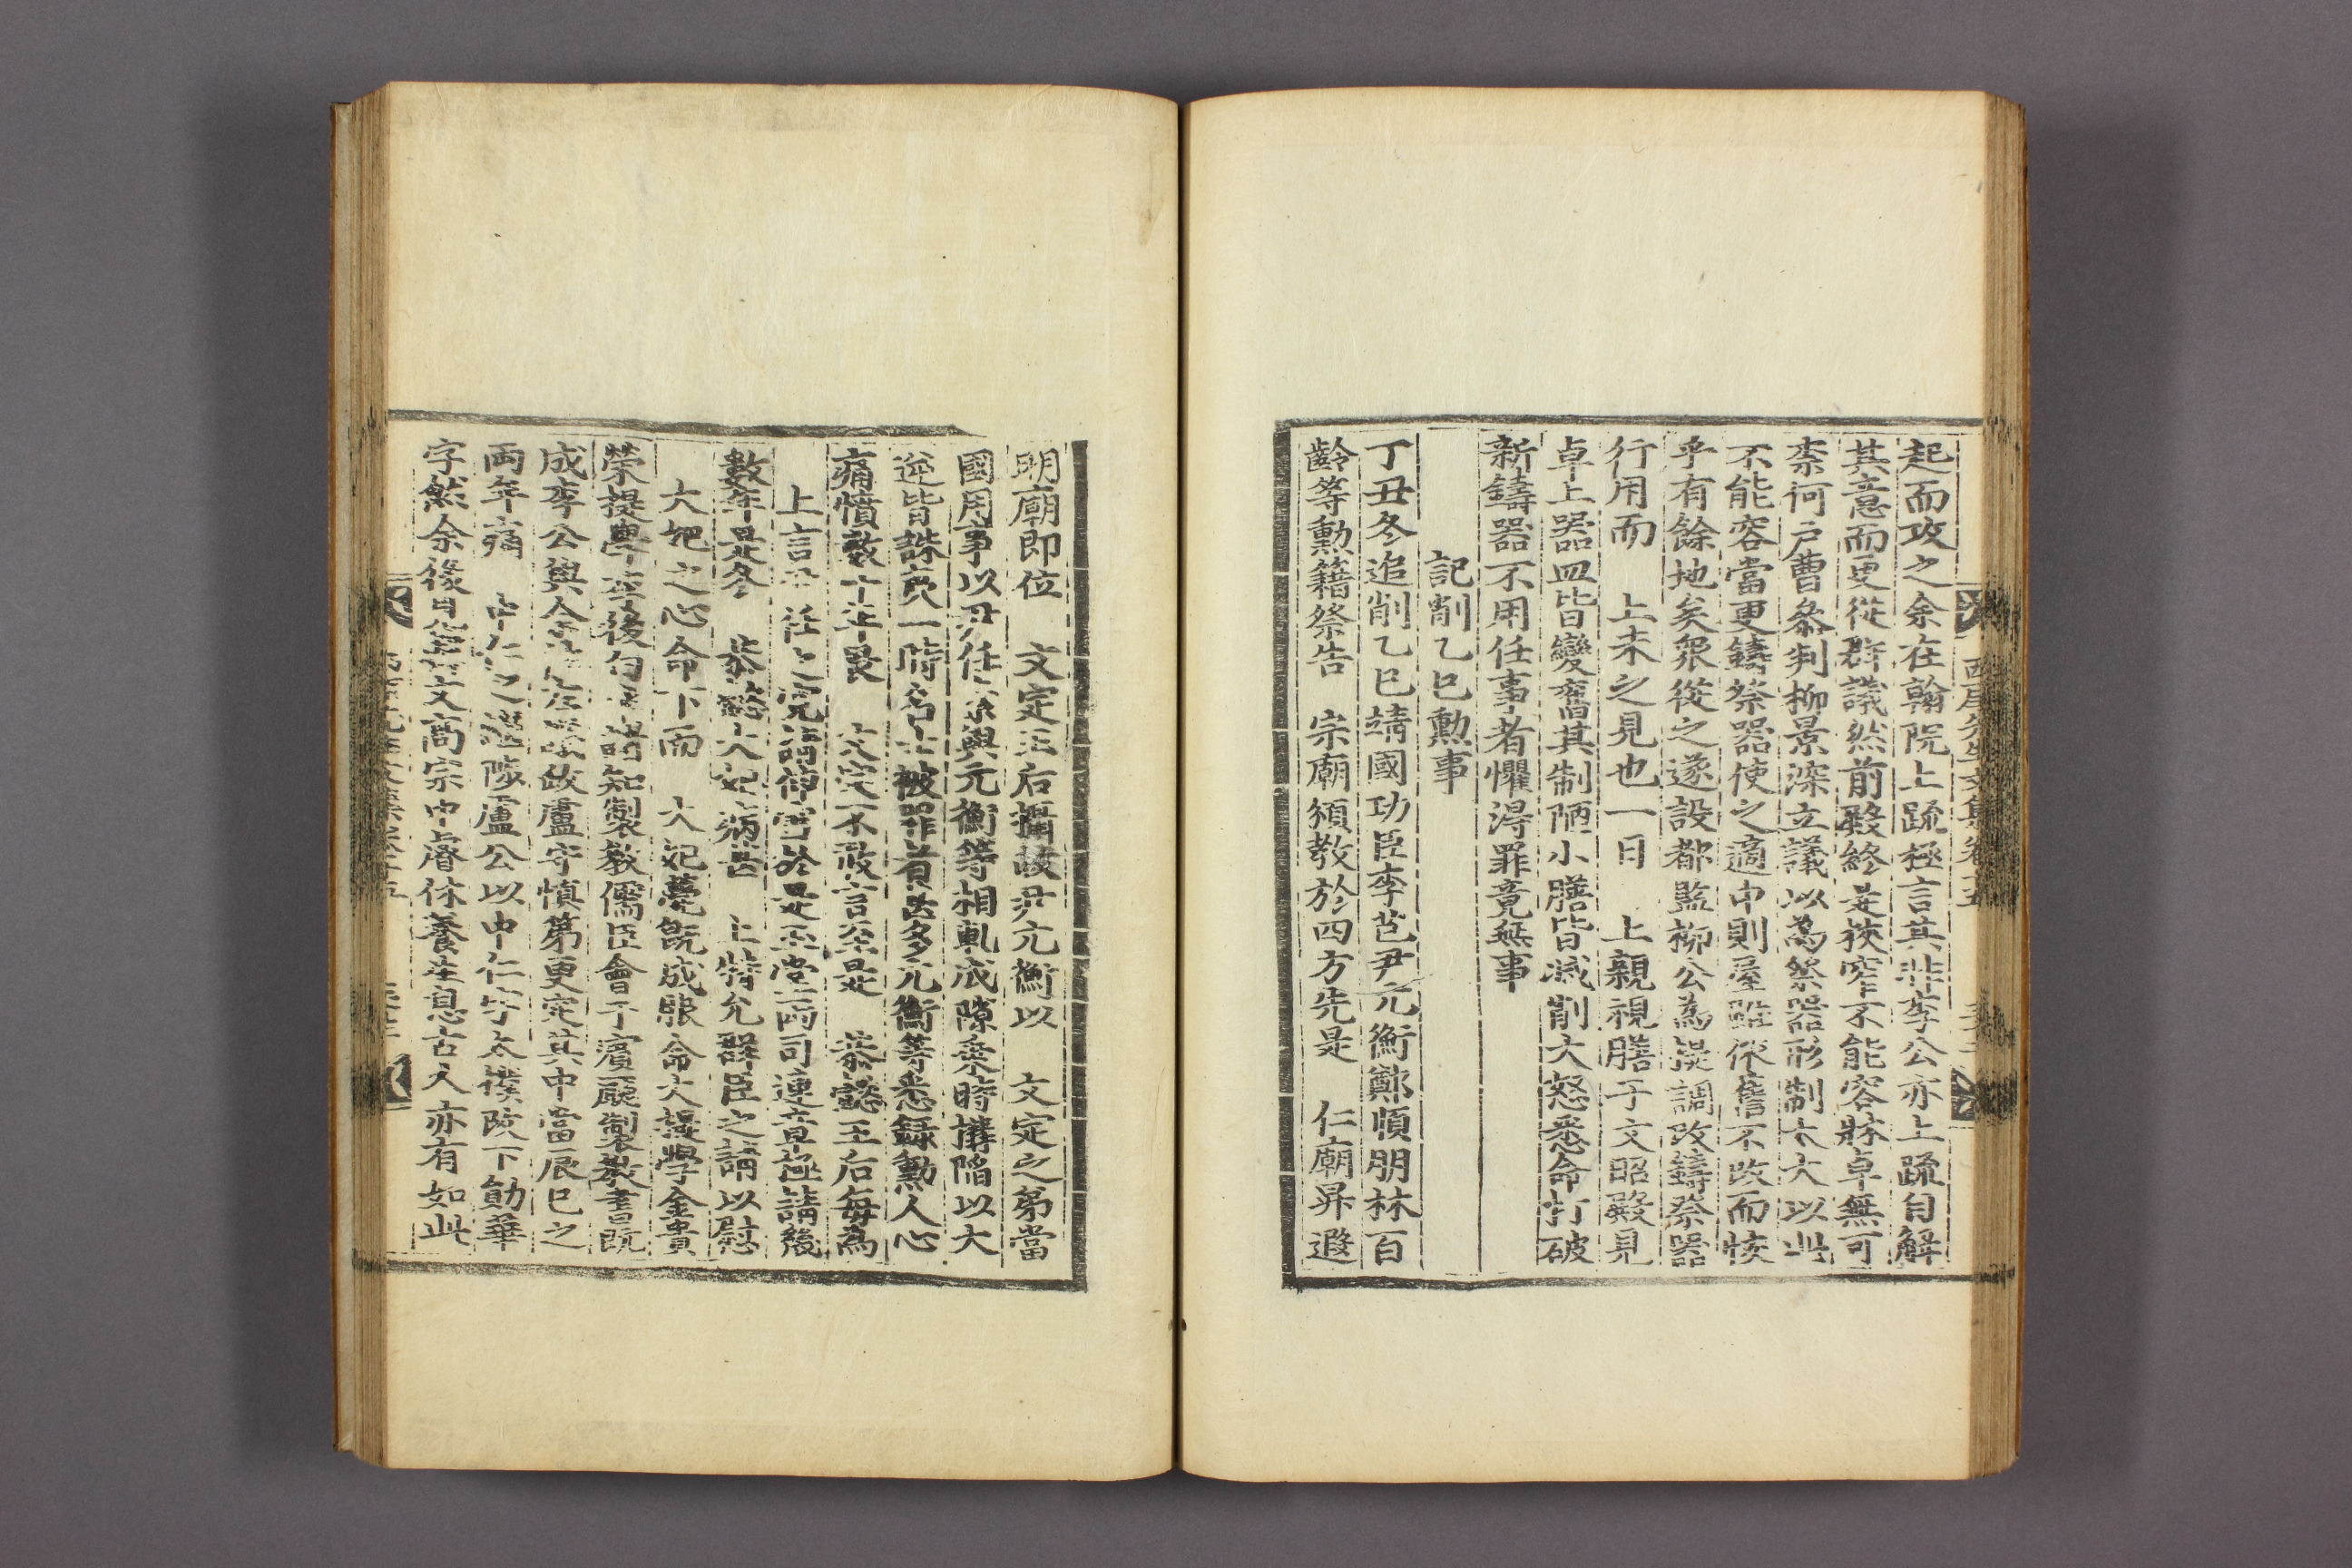 起而攻之余在翰院上疏極言其非李公亦上疏自解
其意而更從群議然前殿終是狹窄不能容牀卓無可
柰何戶曹參判柳景深立議以爲祭器形制太大以此
不能容當更鑄祭器使之適中則屋雖依舊不改而恢
乎有餘地矣衆從之遂設都監柳公爲提調改鑄祭器
行用而 上未之見也一日 上親視膳于文昭殿見
卓上器皿皆變舊其制陋小膳皆減削大怒悉命打破
新鑄器不用任事者懼得罪竟無事
記削乙巳勳事
丁丑冬追削乙巳靖國功臣李芑尹元衡鄭順朋林百
齡等勳籍祭告 宗廟頒教於四方先是 仁廟昇遐
明廟即位 文定王后攝政尹元衡以 文定之弟當
國用事以尹任家與元衡等相軋成隙乘時搆陷以大
逆皆誅夷一時名士被罪者甚多元衡等悉錄勳人心
痛憤數十年畏 文定不敢言至是 恭懿王后每爲
上言尹任之冤請伸雪於是玉堂兩司連章極請幾
數年是冬 恭懿大妃病甚 上特允群臣之請以慰
大妃之心命下而 大妃薨旣成服命大提學金貴
榮提學李後白 知製教儒臣會于賓廳製教書旣
成李公與余 政盧守愼第更定其中當辰巳之
兩年痛 中仁之繼陟盧公以中仁字太襆改下勛華
字然余後 文商宗中 休養生息古文亦有如此
西厓先生文集卷十五